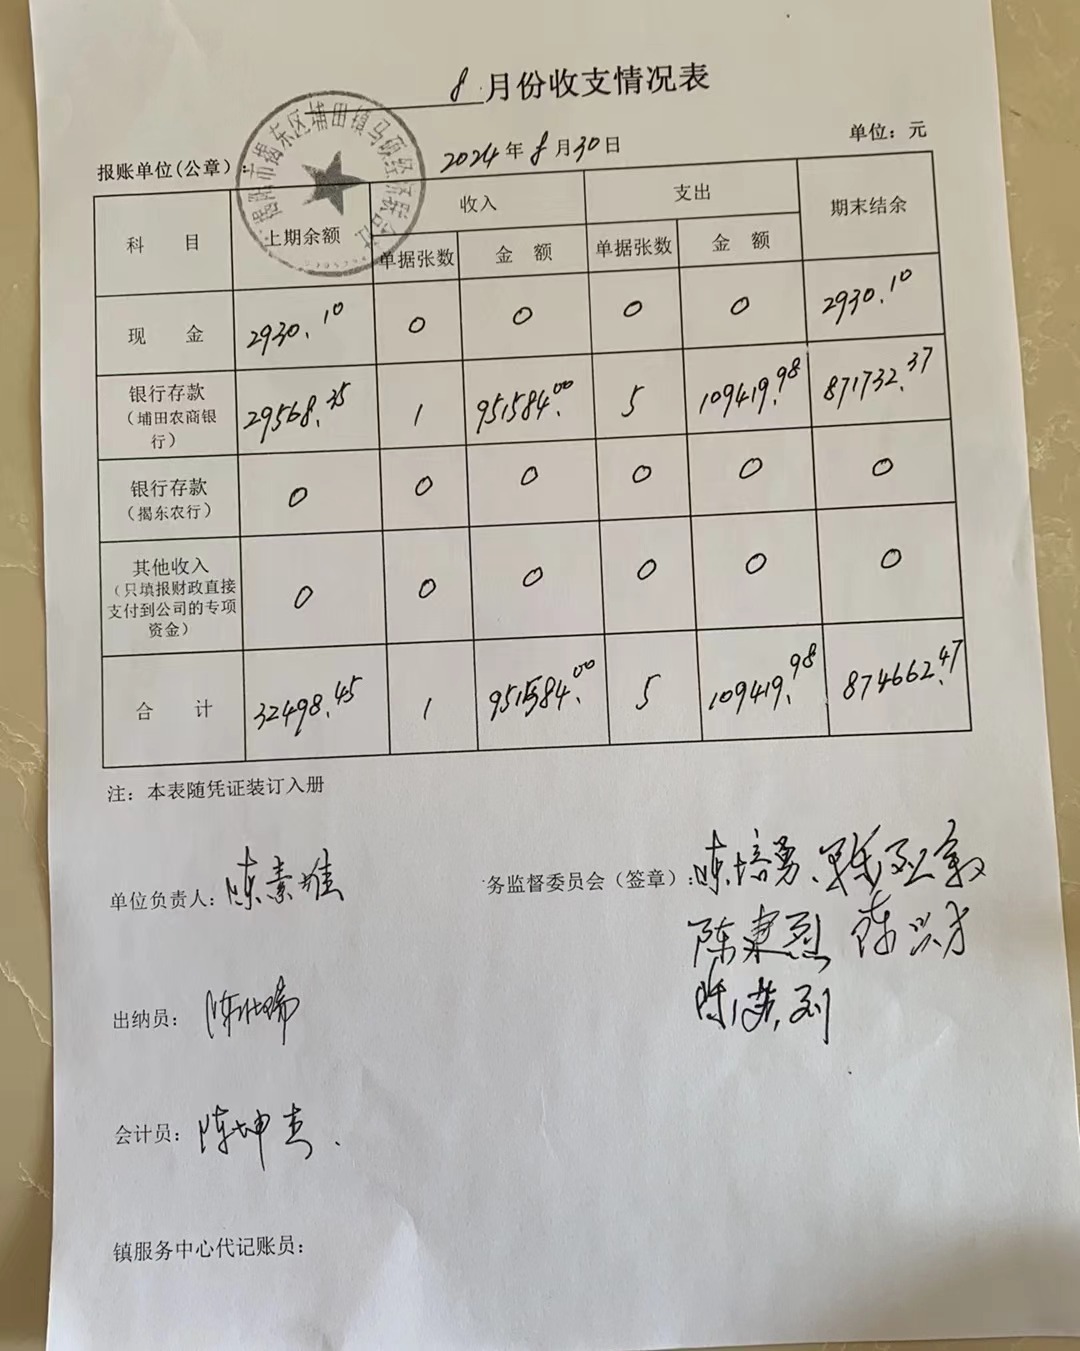 8月份收支情况表
报账单位(公章): 2024年8月30日 单位: 元
揭阳市揭东区埔田镇马硕经济联合社
科 目 上期余额 收入 支出 期末结余
单据张数 金 额 单据张数 金 额
现 金 2930.10 0 0 0 0 2930.10
银行存款
(埔田农商银
行) 29568.35 1 951584.00 5 109419.98 871732.37
银行存款
(揭东农行) 0 0 0 0 0 0
其他收入
(只填报财政直接
支付到公司的专项
资金) 0 0 0 0 0 0
合 计 32498.45 1 951584.00 5 109419.98 874662.47
注: 本表随凭证装订入册
单位负责人: 陈素雄 务监督委员会(签章): 陈培勇
陈秉烈 陈兴才
出纳员: 陈
会计员: 陈坤杰
镇服务中心代记账员: